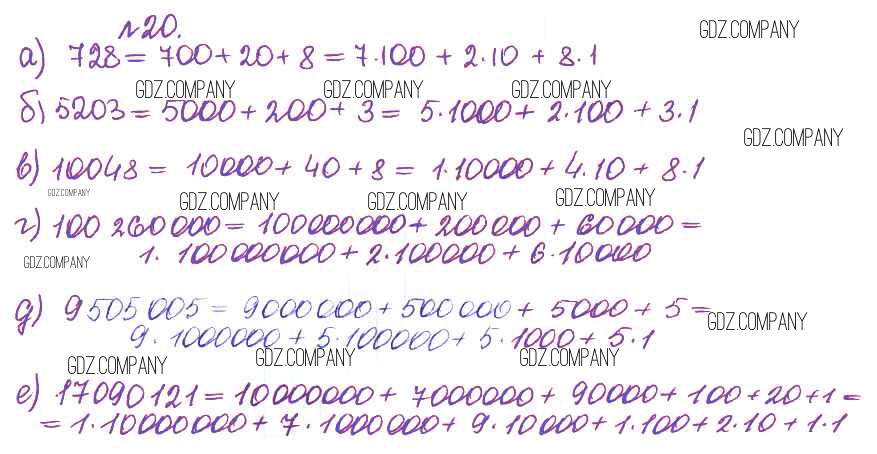 №20.
GDZ.COMPANY
а) 728 = 700 + 20 + 8 = 7·100 + 2·10 + 8·1
GDZ.COMPANY GDZ.COMPANY GDZ.COMPANY
б) 5203 = 5000 + 200 + 3 = 5·1000 + 2·100 + 3·1
GDZ.COMPANY
в) 10048 = 10000 + 40 + 8 = 1·10000 + 4·10 + 8·1
GDZ.COMPANY GDZ.COMPANY GDZ.COMPANY GDZ.COMPANY
г) 100 260 000 = 100000000 + 200000 + 60000 =
1· 100000000 + 2·100000 + 6·10000
GDZ.COMPANY
д) 9505005 = 9000000 + 500000 + 5000 + 5 =
GDZ.COMPANY
9·1000000 + 5·100000 + 5·1000 + 5·1
GDZ.COMPANY GDZ.COMPANY GDZ.COMPANY
е) 17090121 = 10000000 + 7000000 + 90000 + 100 + 20 + 1 =
= 1·10000000 + 7·1000000 + 9·10000 + 1·100 + 2·10 + 1·1